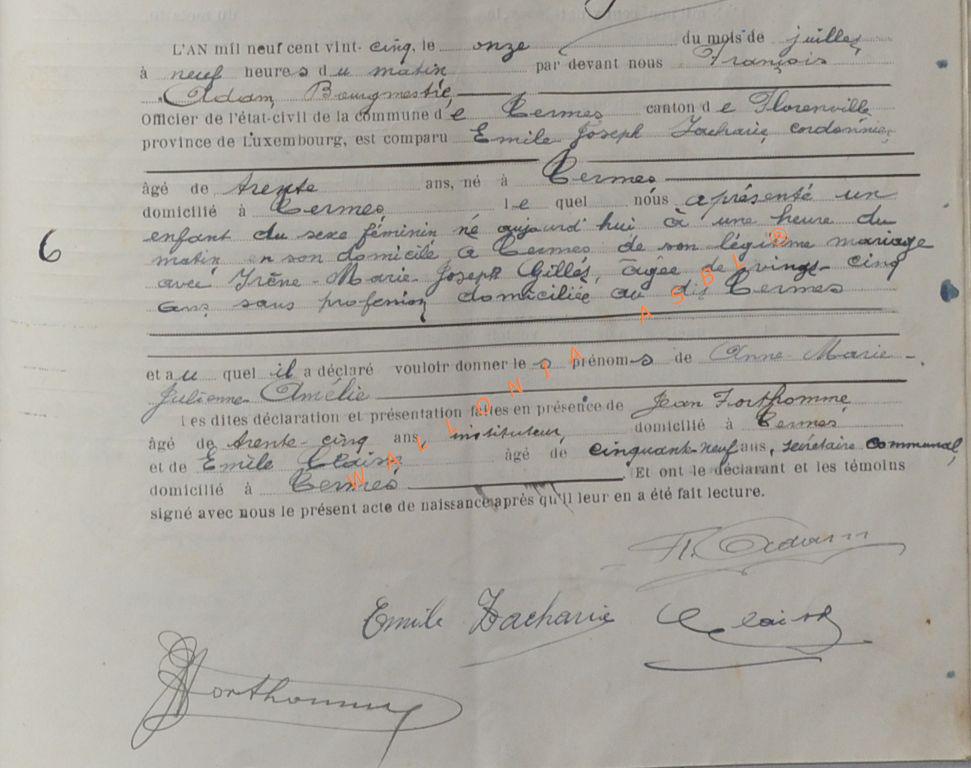 L'AN mil neuf cent vint-cinq, le onze du mois de juillet
à neuf heures du matin par devant nous François
Adam, Bourgmestre,
Officier de l'état-civil de la commune de Termes canton de Florenville
province de Luxembourg, est comparu Emile Joseph Zacharie, cordonnier,
âgé de trente ans, né à Termes
domicilié à Termes, le quel nous a présenté un
6
enfant du sexe féminin né aujourd'hui, à une heure du
matin en son domicile, à Termes de son légitime mariage
avec Irène-Marie-Joseph Gilles, âgée de vingt-cinq
ans, sans profession domiciliée au dit Termes
et au quel il a déclaré vouloir donner les prénoms de Anne-Marie-
Julienne-Amélie
Les dites déclaration et présentation faites en présence de Jean Forthomme
âgé de trente-cinq ans, instituteur, domicilié à Termes
et de Emile âgé de cinquante-neuf ans, secrétaire communal,
domicilié à Termes Et ont le déclarant et les témoins
signé avec nous le présent acte de naissance après qu'il leur en a été fait lecture.
WALLONIA ASBL ®
Fr. Adam
Emile Zacharie
Forthomme